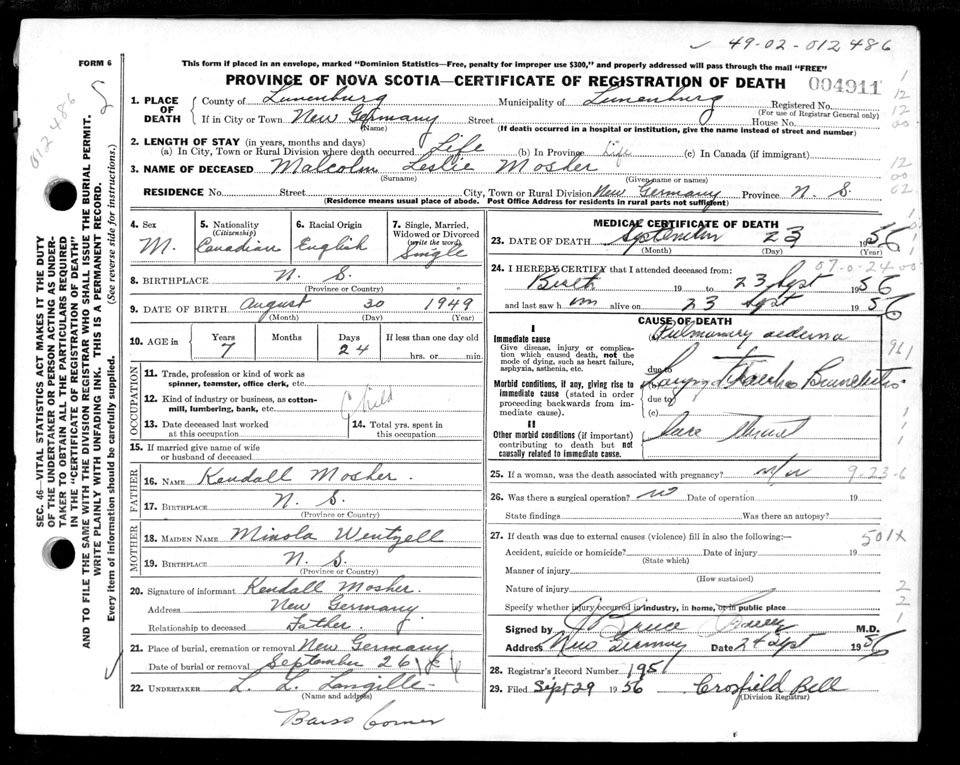 ✓ 49-02-012486
FORM 6
This form if placed in an envelope, marked "Dominion Statistics—Free, penalty for improper use $300," and properly addressed will pass through the mail "FREE"
PROVINCE OF NOVA SCOTIA—CERTIFICATE OF REGISTRATION OF DEATH
004911
012486
SEC. 46—VITAL STATISTICS ACT MAKES IT THE DUTY
OF THE UNDERTAKER OR PERSON ACTING AS UNDER-
TAKER TO OBTAIN ALL THE PARTICULARS REQUIRED
IN THE "CERTIFICATE OF REGISTRATION OF DEATH"
AND TO FILE THE SAME WITH THE DIVISION REGISTRAR WHO SHALL ISSUE THE BURIAL PERMIT.
WRITE PLAINLY WITH UNFADING INK. THIS IS A PERMANENT RECORD.
Every item of information should be carefully supplied. (See reverse side for instructions.)
1. PLACE OF DEATH
County of Lunenburg Municipality of Lunenburg Registered No.
(For use of Registrar General only)
If in City or Town New Germany Street House No.
(Name) (If death occurred in a hospital or institution, give the name instead of street and number)
2. LENGTH OF STAY (in years, months and days)
(a) In City, Town or Rural Division where death occurred Life (b) In Province Life (c) In Canada (if immigrant)
3. NAME OF DECEASED Malcolm Leslie Mosher
(Surname) (Given name or names)
RESIDENCE No. Street City, Town or Rural Division New Germany Province N. S.
(Residence means usual place of abode. Post Office Address for residents in rural parts not sufficient)
4. Sex
M.
5. Nationality
(Citizenship)
Canadian
6. Racial Origin
English
7. Single, Married,
Widowed or Divorced
(write the word)
Single
8. BIRTHPLACE N. S.
(Province or Country)
9. DATE OF BIRTH August 30 1949
(Month) (Day) (Year)
10. AGE in Years Months Days If less than one day old
7 24 hrs. or min.
OCCUPATION
11. Trade, profession or kind of work as
spinner, teamster, office clerk, etc.
12. Kind of industry or business, as cotton-
mill, lumbering, bank, etc.
Child
13. Date deceased last worked
at this occupation
14. Total yrs. spent in
this occupation
15. If married give name of wife
or husband of deceased
FATHER
16. NAME Kendall Mosher
17. BIRTHPLACE N. S.
(Province or Country)
MOTHER
18. MAIDEN NAME Minola Wentzell
19. BIRTHPLACE N. S.
(Province or Country)
20. Signature of informant Kendall Mosher
Address New Germany
Relationship to deceased Father
21. Place of burial, cremation or removal New Germany
Date of burial or removal September 26
22. UNDERTAKER L. L. Langille
(Name and address)
Barss Corner
MEDICAL CERTIFICATE OF DEATH
23. DATE OF DEATH September 23 1956
(Month) (Day) (Year)
07-0-24-00
24. I HEREBY CERTIFY that I attended deceased from:
Birth 19 to 23 Sept 1956
and last saw him alive on 23 Sept 1956
CAUSE OF DEATH
I
Immediate cause
Give disease, injury or complica-
tion which caused death, not the
mode of dying, such as heart failure,
asphyxia, asthenia, etc.
Pulmonary oedema
due to
Laryngo Tracheo Bronchitis
Morbid conditions, if any, giving rise to
immediate cause (stated in order
proceeding backwards from im-
mediate cause).
due to
(c)
II
Other morbid conditions (if important)
contributing to death but not
causally related to immediate cause.
25. If a woman, was the death associated with pregnancy? 9-23-6
26. Was there a surgical operation? no Date of operation 19
State findings Was there an autopsy?
27. If death was due to external causes (violence) fill in also the following:— 501X
Accident, suicide or homicide? Date of injury 19
(State which)
Manner of injury
(How sustained)
Nature of injury
Specify whether injury occurred in industry, in home, or in public place
Signed by Bruce M.D.
Address New Germany Date 24 Sept 1956
28. Registrar's Record Number 195
29. Filed Sept 29 1956 Crosfield Bell
(Division Registrar)